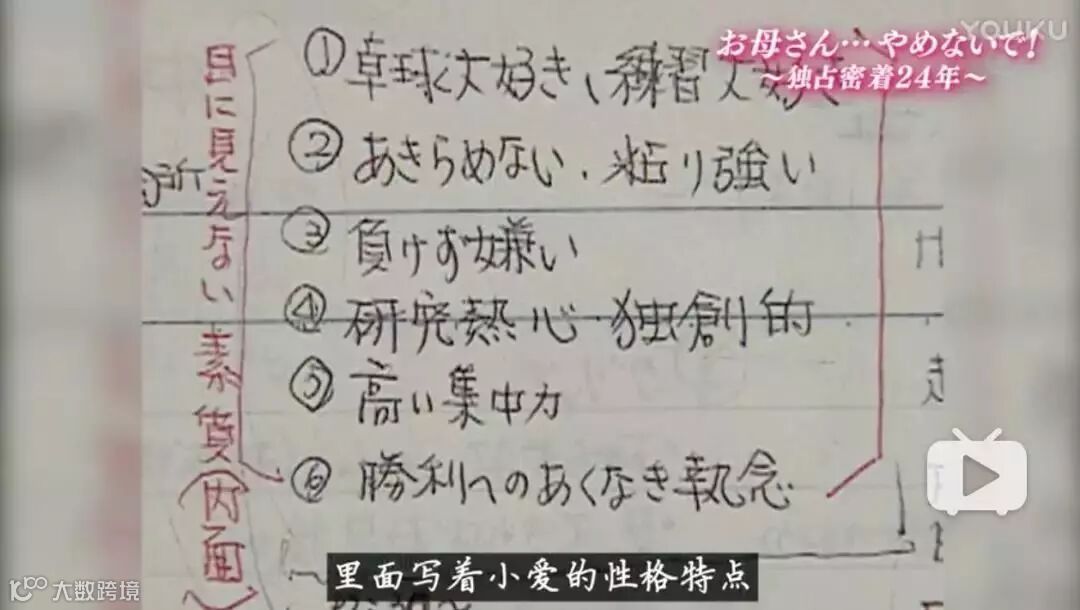 YOUKU
お母さん…やめないで!
～独占密着24年～
目に見えない素質(内面)
①卓球大好き、練習大好
②あきらめない、粘り強い
所
③負けず嫌い
④研究熱心 独創的
⑤高い集中力
⑥勝利へのあくなき執念
里面写着小爱的性格特点
大数跨境